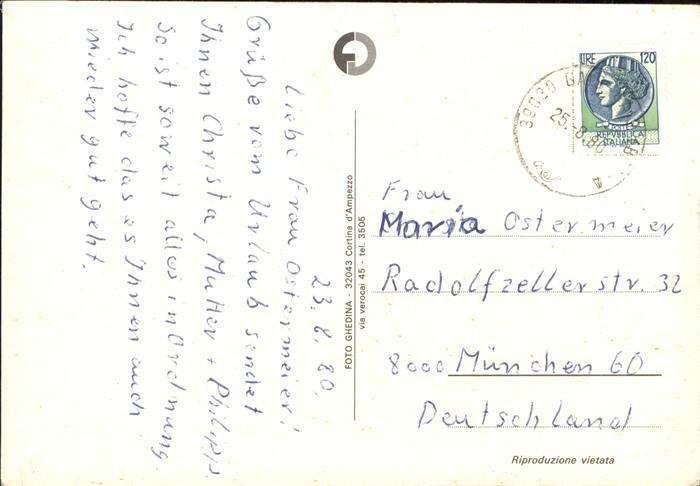 23.8.80.
Liebe Frau Ostermeier!
Grüße vom Urlaub sendet
Ihnen Christa, Mutter + Philipp.
So ist soweit alles in Ordnung.
Ich hoffe das es Ihnen auch
wieder gut geht.
FOTO GHEDINA - 32043 Cortina d'Ampezzo
via verocai 45 - tel. 3505
LIRE 120
REPVBBLICA
ITALIANA
39030
25.-8.80
Frau
Maria Ostermeier
Radolfzellerstr. 32
8000 München 60
Deutschland
Riproduzione vietata